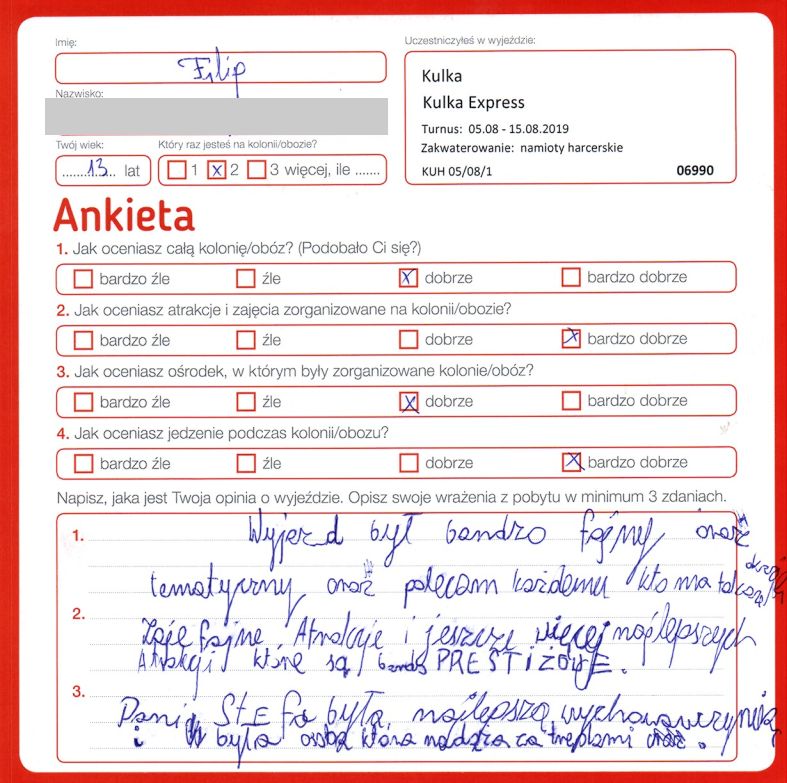 Imię:
Filip
Nazwisko:
Twój wiek:
13 lat
Który raz jesteś na kolonii/obozie?
1 x 2 3 więcej, ile .......
Uczestniczyłeś w wyjeździe:
Kulka
Kulka Express
Turnus: 05.08 - 15.08.2019
Zakwaterowanie: namioty harcerskie
KUH 05/08/1 06990
Ankieta
1. Jak oceniasz całą kolonię/obóz? (Podobało Ci się?)
bardzo źle źle x dobrze bardzo dobrze
2. Jak oceniasz atrakcje i zajęcia zorganizowane na kolonii/obozie?
bardzo źle źle dobrze x bardzo dobrze
3. Jak oceniasz ośrodek, w którym były zorganizowane kolonie/obóz?
bardzo źle źle x dobrze bardzo dobrze
4. Jak oceniasz jedzenie podczas kolonii/obozu?
bardzo źle źle dobrze x bardzo dobrze
Napisz, jaka jest Twoja opinia o wyjeździe. Opisz swoje wrażenia z pobytu w minimum 3 zdaniach.
1. Wyjazd był bardzo fajny oraz
tematyczny oraz polecam każdemu kto ma
2. fajne Atrakcje i jeszcze więcej najlepszych
Atrakcji które są PRESTIŻOWE.
3. Pani Stefa była najlepszą wychowawczynią
i była osobą która za